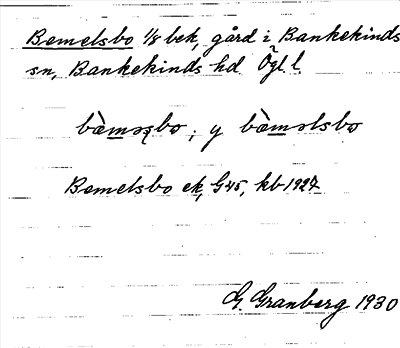 Bemelsbo 1/8 bek, gård i Bankekinds
sn, Bankekinds hd Ögl l.
bàməʂbo, y bòməlsbo
Bemelsbo ek, G45, kb 1927
G. Granberg 1930